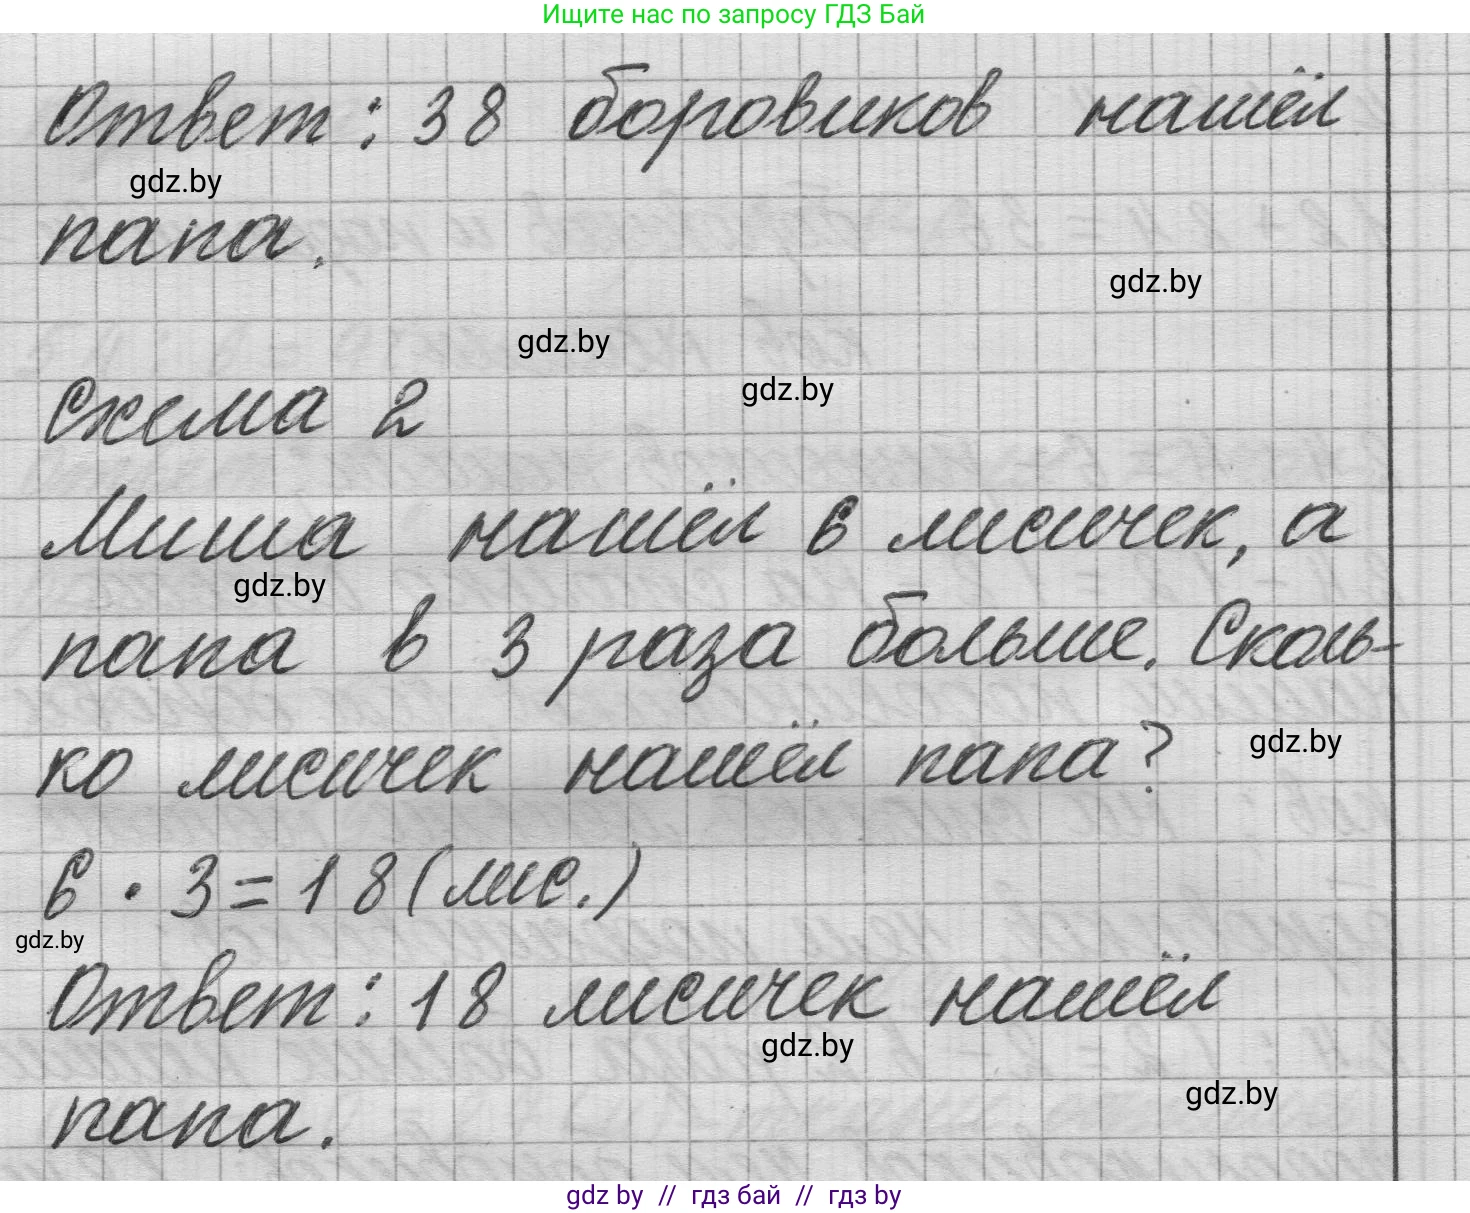 Ищите нас по запросу ГДЗ Бай
Ответ: 38 боровиков нашёл
gdz.by
папа.
gdz.by
gdz.by
gdz.by
Схема 2
Миша нашёл 6 лисичек, а
gdz.by
папа в 3 раза больше. Сколь-
ко лисичек нашёл папа?
gdz.by
6 · 3 = 18 (лис.)
gdz.by
Ответ: 18 лисичек нашёл
gdz.by
gdz.by
папа.
gdz by // гдз бай // гдз by